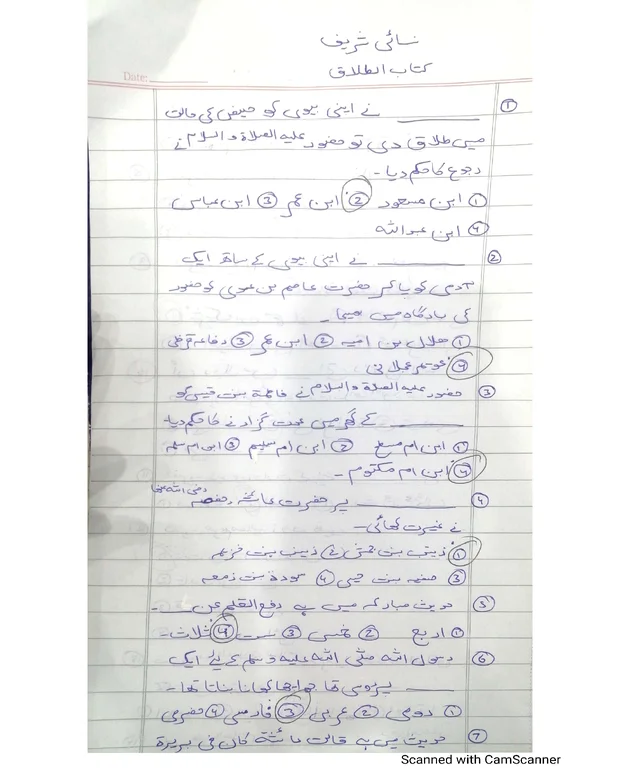 نسائی شریف
کتاب الطلاق
Date:
① ــــــ نے اپنی بیوی کو حیض کی حالت
میں طلاق دی تو حضور علیہ الصلاۃ والسلام نے
رجوع کا حکم دیا۔
① ابن مسعود ② ابن عمر ③ ابن عباس
④ ابن عبداللہ
② ــــــ نے اپنی بیوی کے ساتھ ایک
آدمی کو پا کر حضرت عاصم بن عدی کو حضور
کی بارگاہ میں بھیجا۔
① ھلال بن امیہ ② ابن عمر ③ رفاعہ قرظی
④ عویمر عجلانی
③ حضور علیہ الصلۃ والسلام نے فاطمہ بنت قیس کو
ــــــ کے گھر میں عدت گزارنے کا حکم دیا
① ابن ام ② ابن ام سلیم ③ ابن ام سلمہ
④ ابن ام مکتوم۔
④ ــــــ پر حضرت عائشہ و حفصہ رضی اللہ عنہا
نے غیرت کھائی۔
① زینب بنت جحش ② زینب بنت خزیمہ
③ صفیہ بنت حیی ④ سودۃ بنت زمعہ
⑤ حدیث مبارکہ میں ہے رفع القلم عن ــــــ۔
① اربع ② خمس ③ ست ④ ثلاث۔
⑥ رسول اللہ صلی اللہ علیہ وسلم کے لئے ایک
ــــــ پڑوسی تھا جو اچھا کھانا بناتا تھا۔
① رومی ② عربی ③ فارسی ④ حضرمی
⑦ حدیث میں ہے قالت عائشۃ کان فی بریرۃ
Scanned with CamScanner